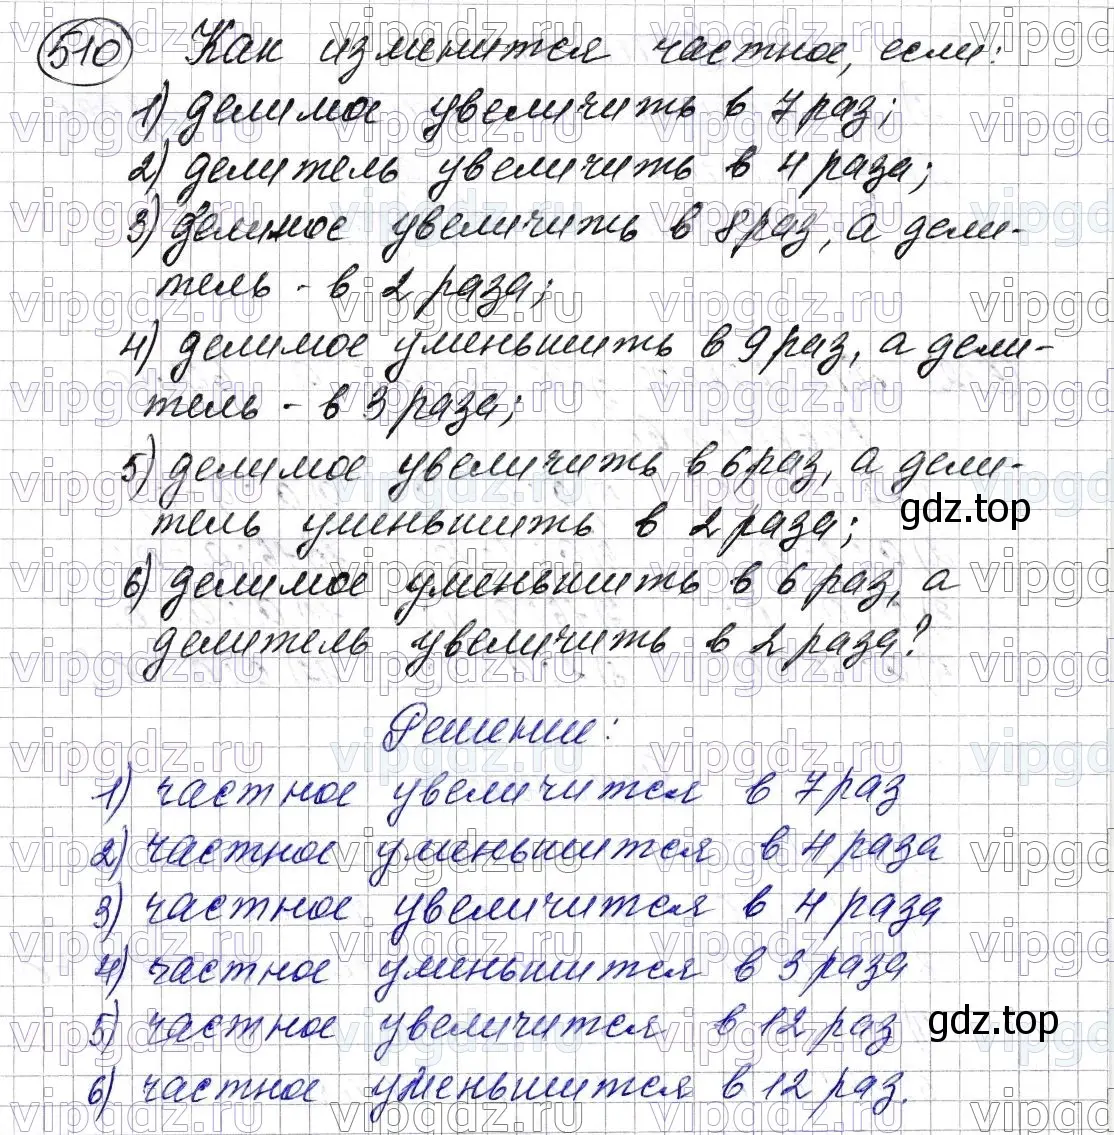 510 Как изменится частное, если:
1) делимое увеличить в 7 раз;
2) делитель увеличить в 4 раза;
3) делимое увеличить в 8 раз, а дели-
тель - в 2 раза;
4) делимое уменьшить в 9 раз, а дели-
тель - в 3 раза;
5) делимое увеличить в 6 раз, а дели-
тель уменьшить в 2 раза;
gdz.top
6) делимое уменьшить в 6 раз, а
делитель увеличить в 2 раза?
Решение:
1) частное увеличится в 7 раз
2) частное уменьшится в 4 раза
3) частное увеличится в 4 раза
4) частное уменьшится в 3 раза
5) частное увеличится в 12 раз
gdz.top
6) частное уменьшится в 12 раз.
vipgdz.ru